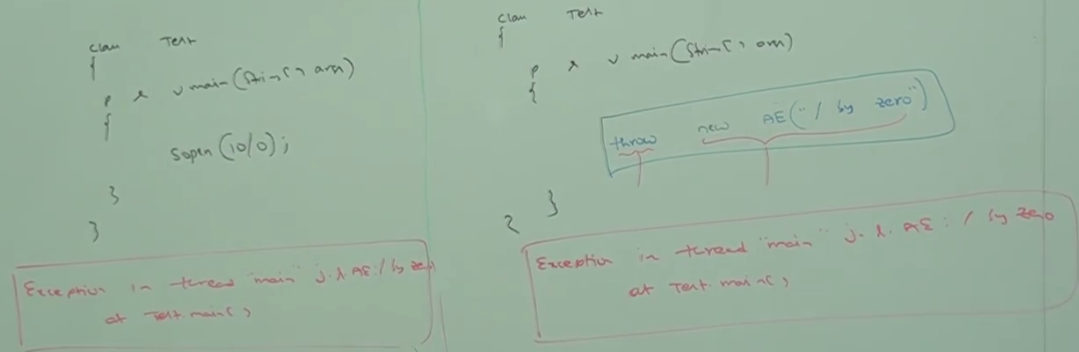 class Test
{
p s v main(String[] args)
{
Sopln(10/0);
}
}
Exception in thread "main" j.l.AE: / by zero
at Test.main()
class Test
{
p s v main(String[] args)
{
throw new AE("/ by zero")
}
}
Exception in thread "main" j.l.AE: / by zero
at Test.main()